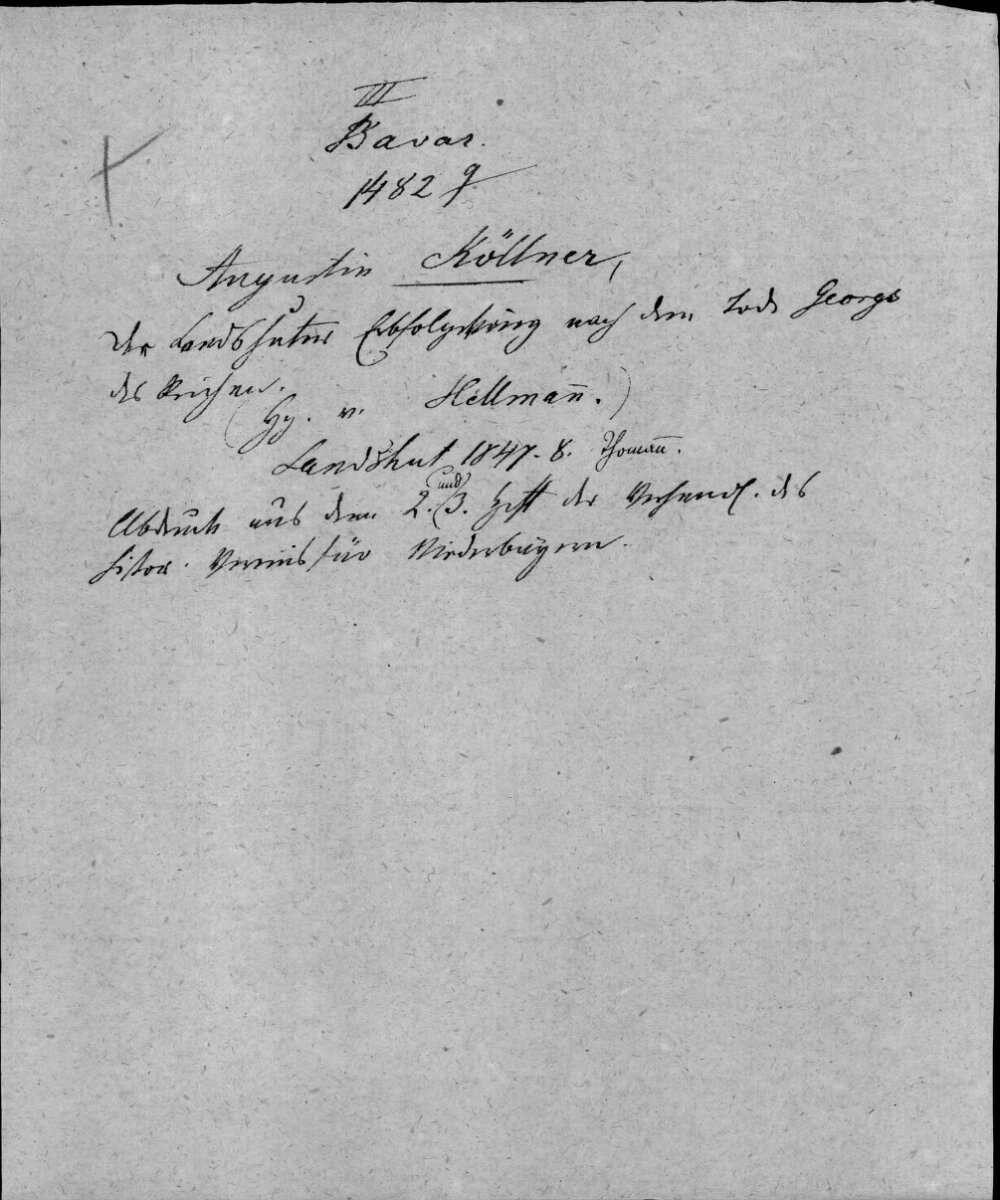 III
Bavar.
1482 q
Augustin Köllner,
Der Landshuter Erbfolgekrieg nach dem Tode Georgs
des Reichen.
(Hg. v. Hellmann̄.)
Landshut 1847-8. Thoman̄.
Abdruck aus dem 2. (und) 3. Heft der Verhandl. des
histor. Vereins für Niederbayern.